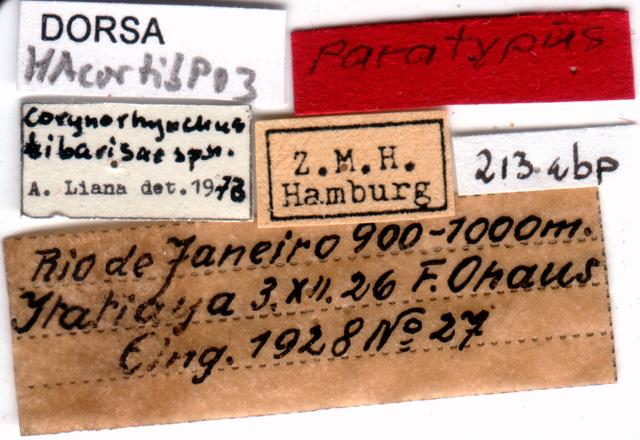 DORSA
HAcortibP03
Paratypus
Corynorhynchus
tibarisae sp.n.
A. Liana det. 1973
Z. M. H.
Hamburg
213 abp
Rio de Janeiro 900-1000m.
Ytatiaya 3.XII.26 F. Ohaus
Eing. 1928 No 27